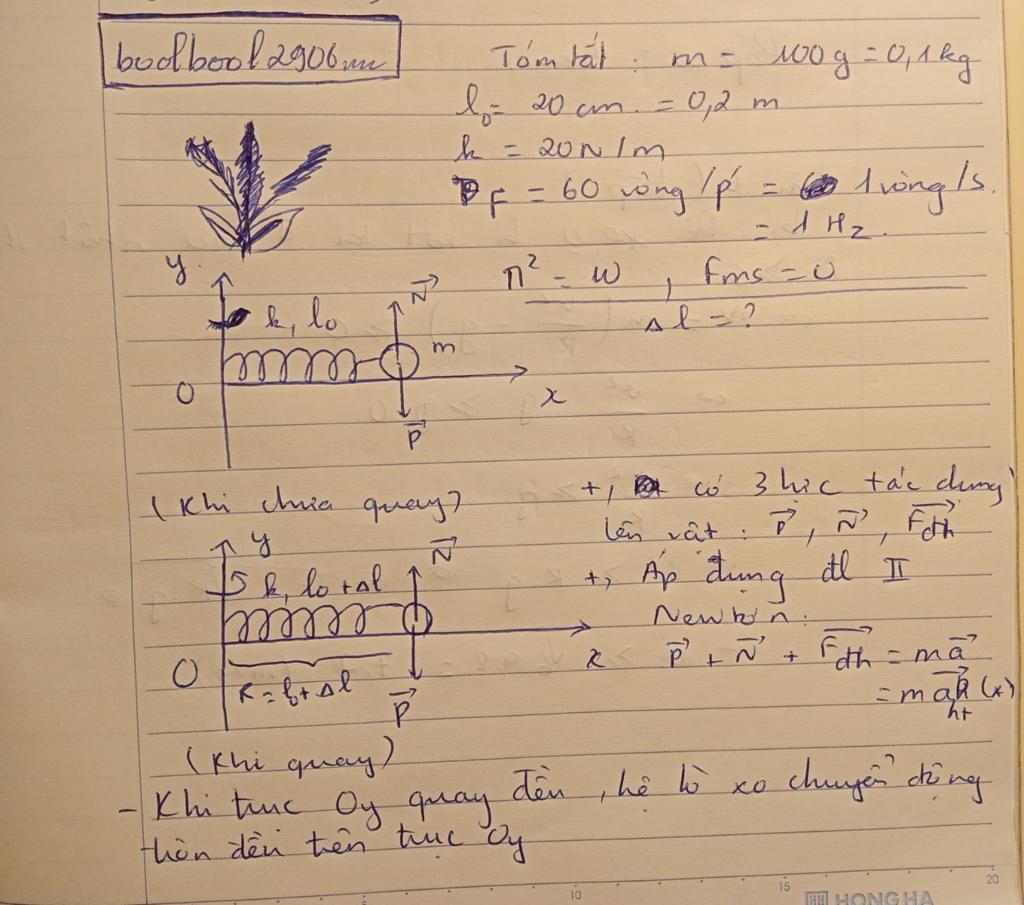 boolbool2906
Tóm tắt : m = 100g = 0,1kg
l₀ = 20 cm. = 0,2 m
k = 20N/m
F = 60 vòng/p' = 1 vòng/s.
= 1 Hz.
π² = 10 , Fms = 0
Δl = ?
y
k, l₀
N
m
O
x
P
(Khi chưa quay)
+, có 3 lực tác dụng
lên vật : P, N, Fđh
+, Áp dụng đl II
Newtơn:
P + N + Fđh = ma
= ma ht (*)
y
k, l₀ + Δl
N
O
x
R = l₀ + Δl
P
(Khi quay)
- Khi trục Oy quay đều, hệ lò xo chuyển động
tròn đều trên trục Oy
10
15
20
HH HONG HA